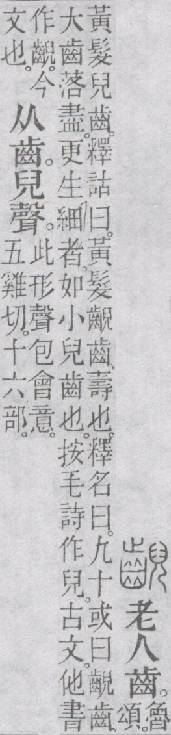 齯老人齒。魯
頌
黃髮兒齒。釋詁曰。黃髮齯齒、壽也。釋名曰。九十或曰齯齒、
大齒落盡。更生細者。如小兒齒也。按毛詩作兒。古文。他書
作齯。今
文也。
从齒。兒聲。
此形聲包會意。
五雞切。十六部。